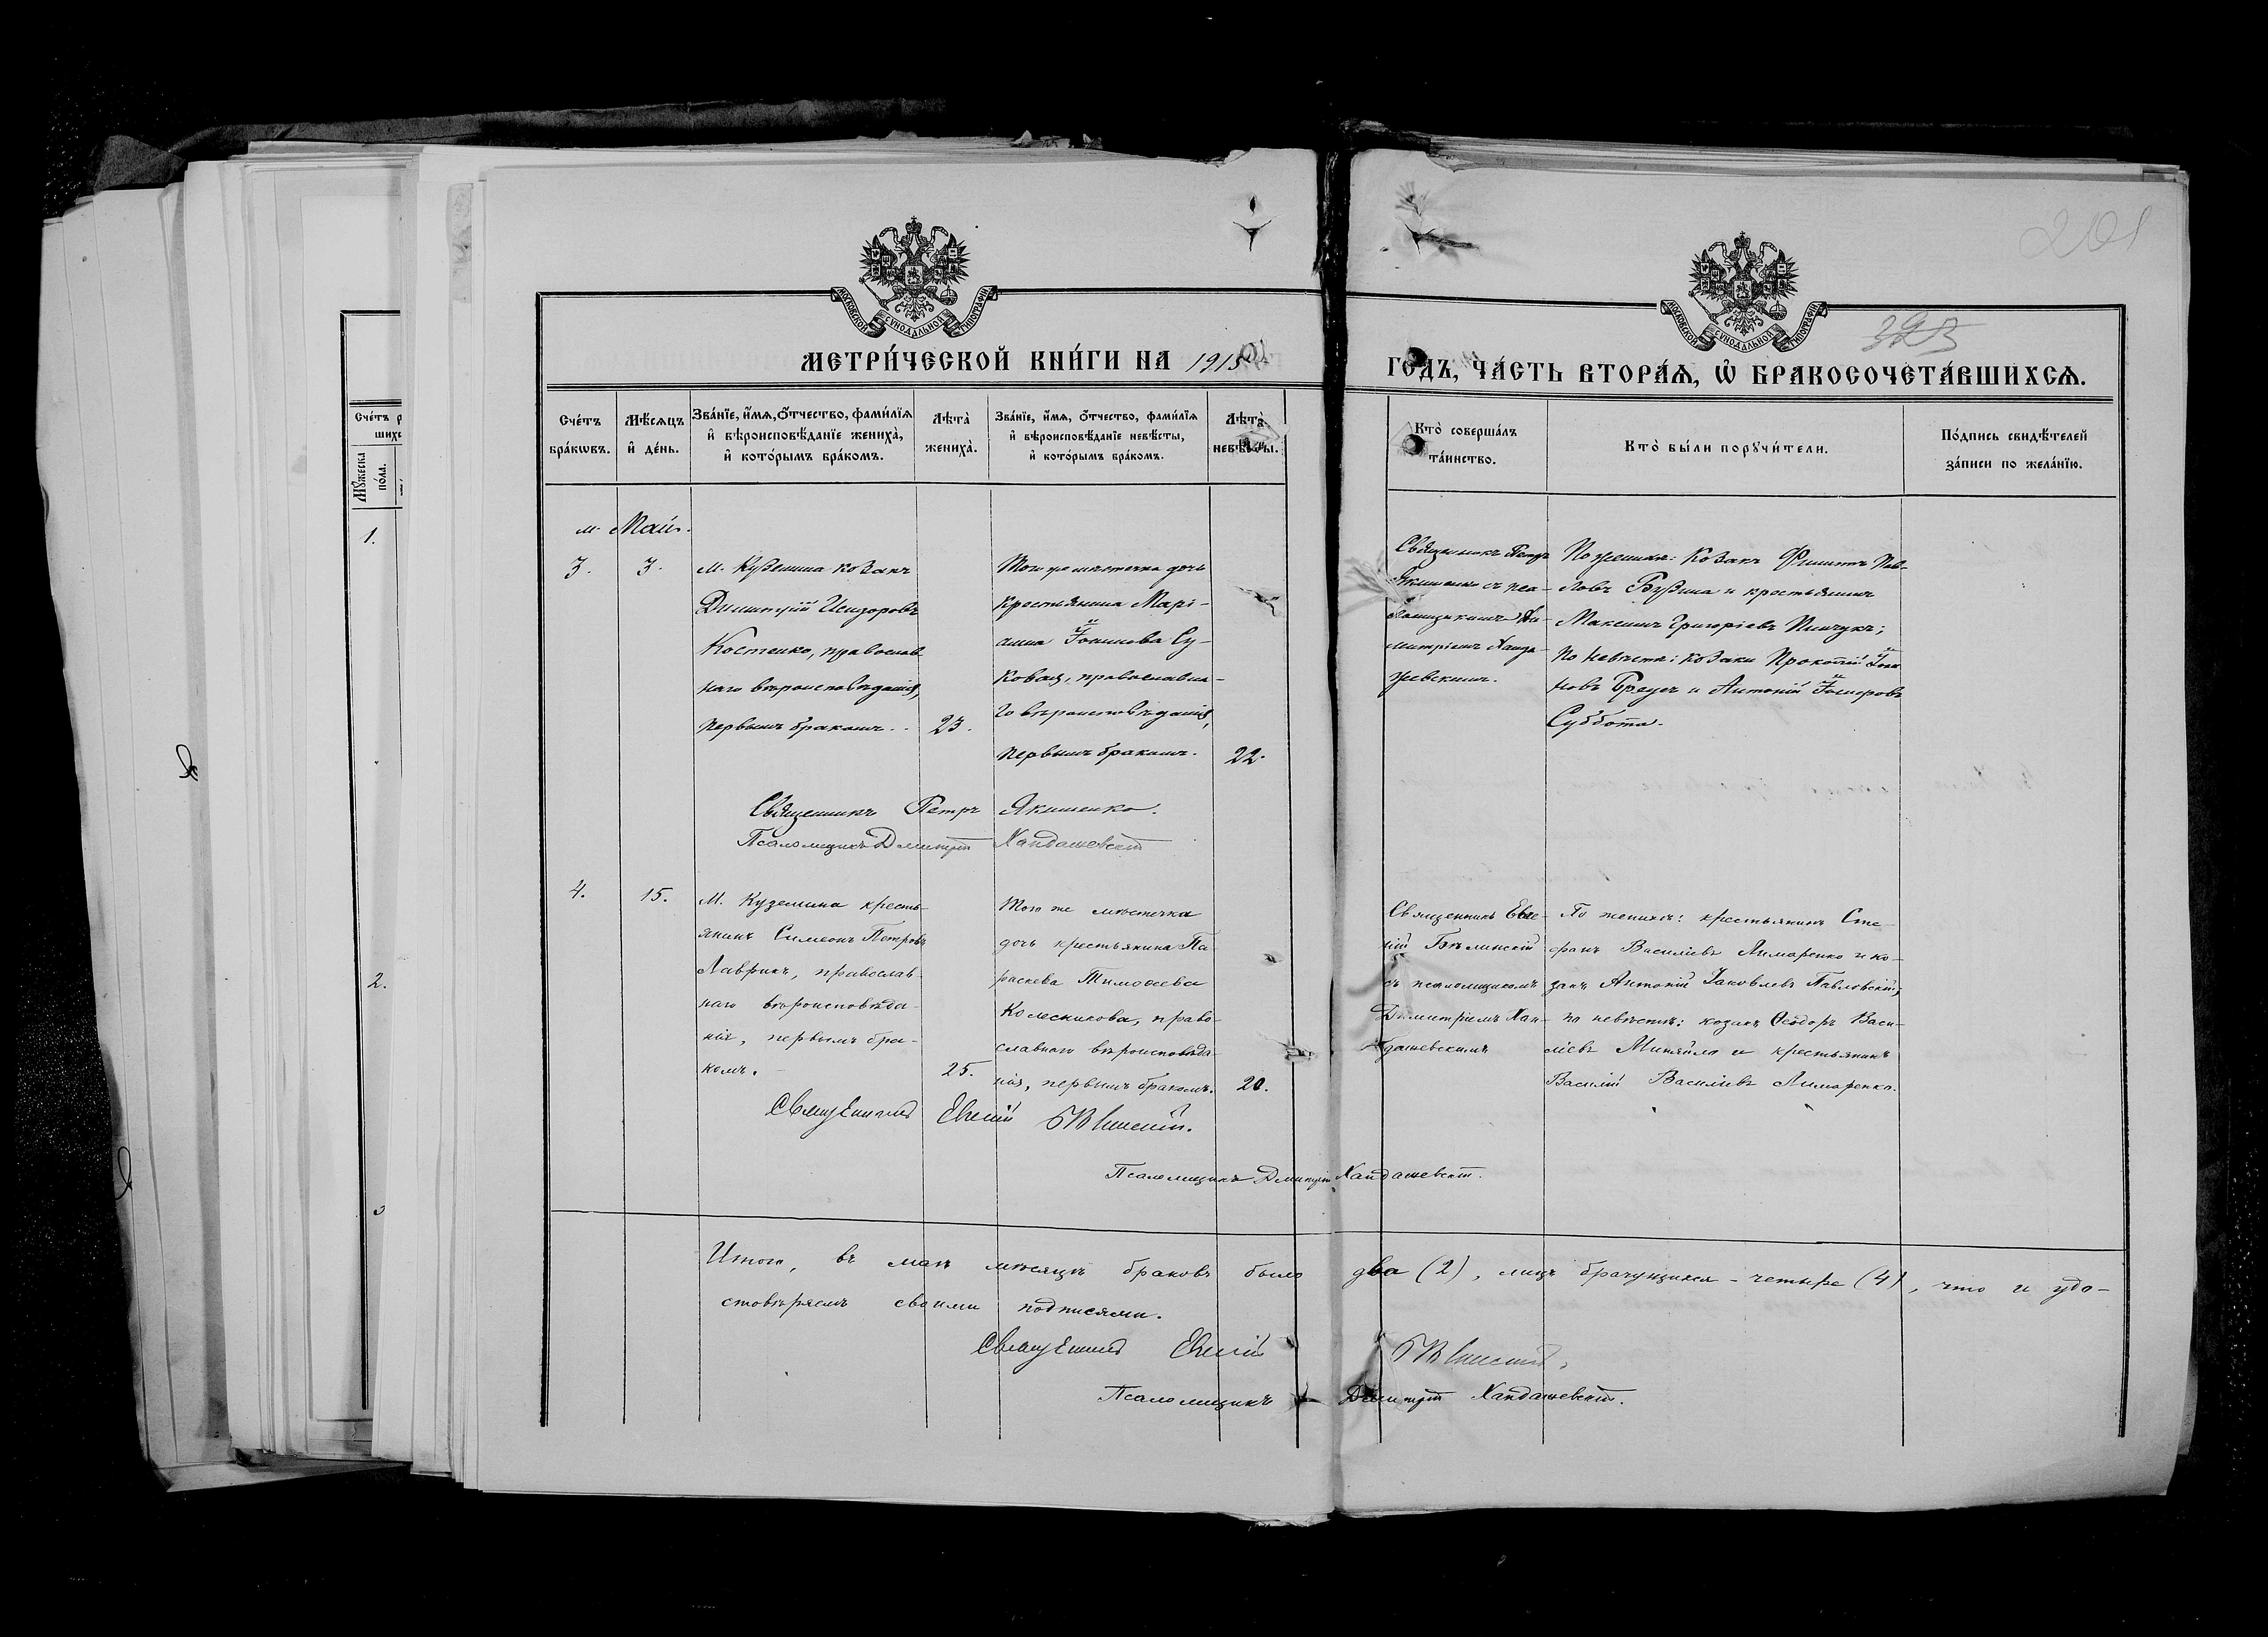 201
МОСКОВСКОЙ СУНОДАЛЬНОЙ ТИПОГРАФІИ
МОСКОВСКОЙ СУНОДАЛЬНОЙ ТИПОГРАФІИ
МЕТРИ́ЧЕСКОЙ КНИ́ГИ НА 1915
ГОДЪ, ЧА́СТЬ ВТОРА́Я, Ѡ҆ БРАКОСОЧЕТА́ВШИХСѦ.
Сче́тъ бра́кѡвъ.
Мѣ́сѧцъ и҆ де́нь.
Зва́нїе, и҆́мѧ, ѻ҆́тчество, фами́лїѧ
и҆ вѣроисповѣ́данїе жениха̀,
и҆ кото́рымъ бра́комъ.
Лѣта̀ жениха̀.
Зва́нїе, и҆́мѧ, ѻ҆́тчество, фами́лїѧ
и҆ вѣроисповѣ́данїе невѣ́сты,
и҆ кото́рымъ бра́комъ.
Лѣта̀ невѣ́сты.
Кто̀ соверша́лъ
та́инство.
Кто̀ бы́ли порꙋчи́тели.
По́дпись свидѣ́телей
за́писи по жела́нїю.
Сче́тъ
Мꙋ́жеска
по́ла.
1.
2.
м. Май.
3.
3.
М. Куземина козакъ
Димитрій Исидоровъ
Костенко, православ
наго вѣроисповѣданія,
первымъ бракомъ.
23.
Того же мѣстечка дочь
крестьянина Марі-
анна
православна-
го вѣроисповѣданія,
первымъ бракомъ.
22.
Священникъ Петръ
Якименко съ пса-
ломщикомъ Ди-
митріемъ Ханда-
жевскимъ.
По женихѣ: козакъ Филиппъ Пав-
ловъ и крестьянинъ
Максимъ Григорьевъ Пинчукъ;
по невѣстѣ: козаки Прокопій
и Антоній
Суббота.
Священникъ Петръ Якименко.
Псаломщикъ Дмитрій Хандажевскій
4.
15.
М. Куземина кресть-
янинъ Симеонъ Петровъ
Лаврикъ, православ-
наго вѣроисповѣда-
нія, первымъ бра-
комъ.
25.
Того же мѣстечка
дочь крестьянина Па-
раскева Тимоѳеева
Колесникова, право-
славнаго вѣроисповѣда-
нія, первымъ бракомъ.
20.
Священникъ Евге-
ній Бѣлинскій
съ псаломщикомъ
Димитріемъ Хан-
дажевскимъ
По женихѣ: крестьянинъ Сте-
фанъ Василіевъ Лимаренко и ко-
закъ Антоній Іаковлевъ Павловскій;
по невѣстѣ: козакъ Ѳеодоръ Васи-
ліевъ Миняйло и крестьянинъ
Василій Василіевъ Лимаренко.
Священникъ Евгеній Бѣлинскій.
Псаломщикъ Дмитрій Хандажевскій.
Итого, въ маѣ мѣсяцѣ браковъ было два (2), лицъ брачущихся - четыре (4), что и удо-
стовѣряемъ своими подписями.
Священникъ Евгеній Бѣлинскій.
Псаломщикъ Дмитрій Хандажевскій.